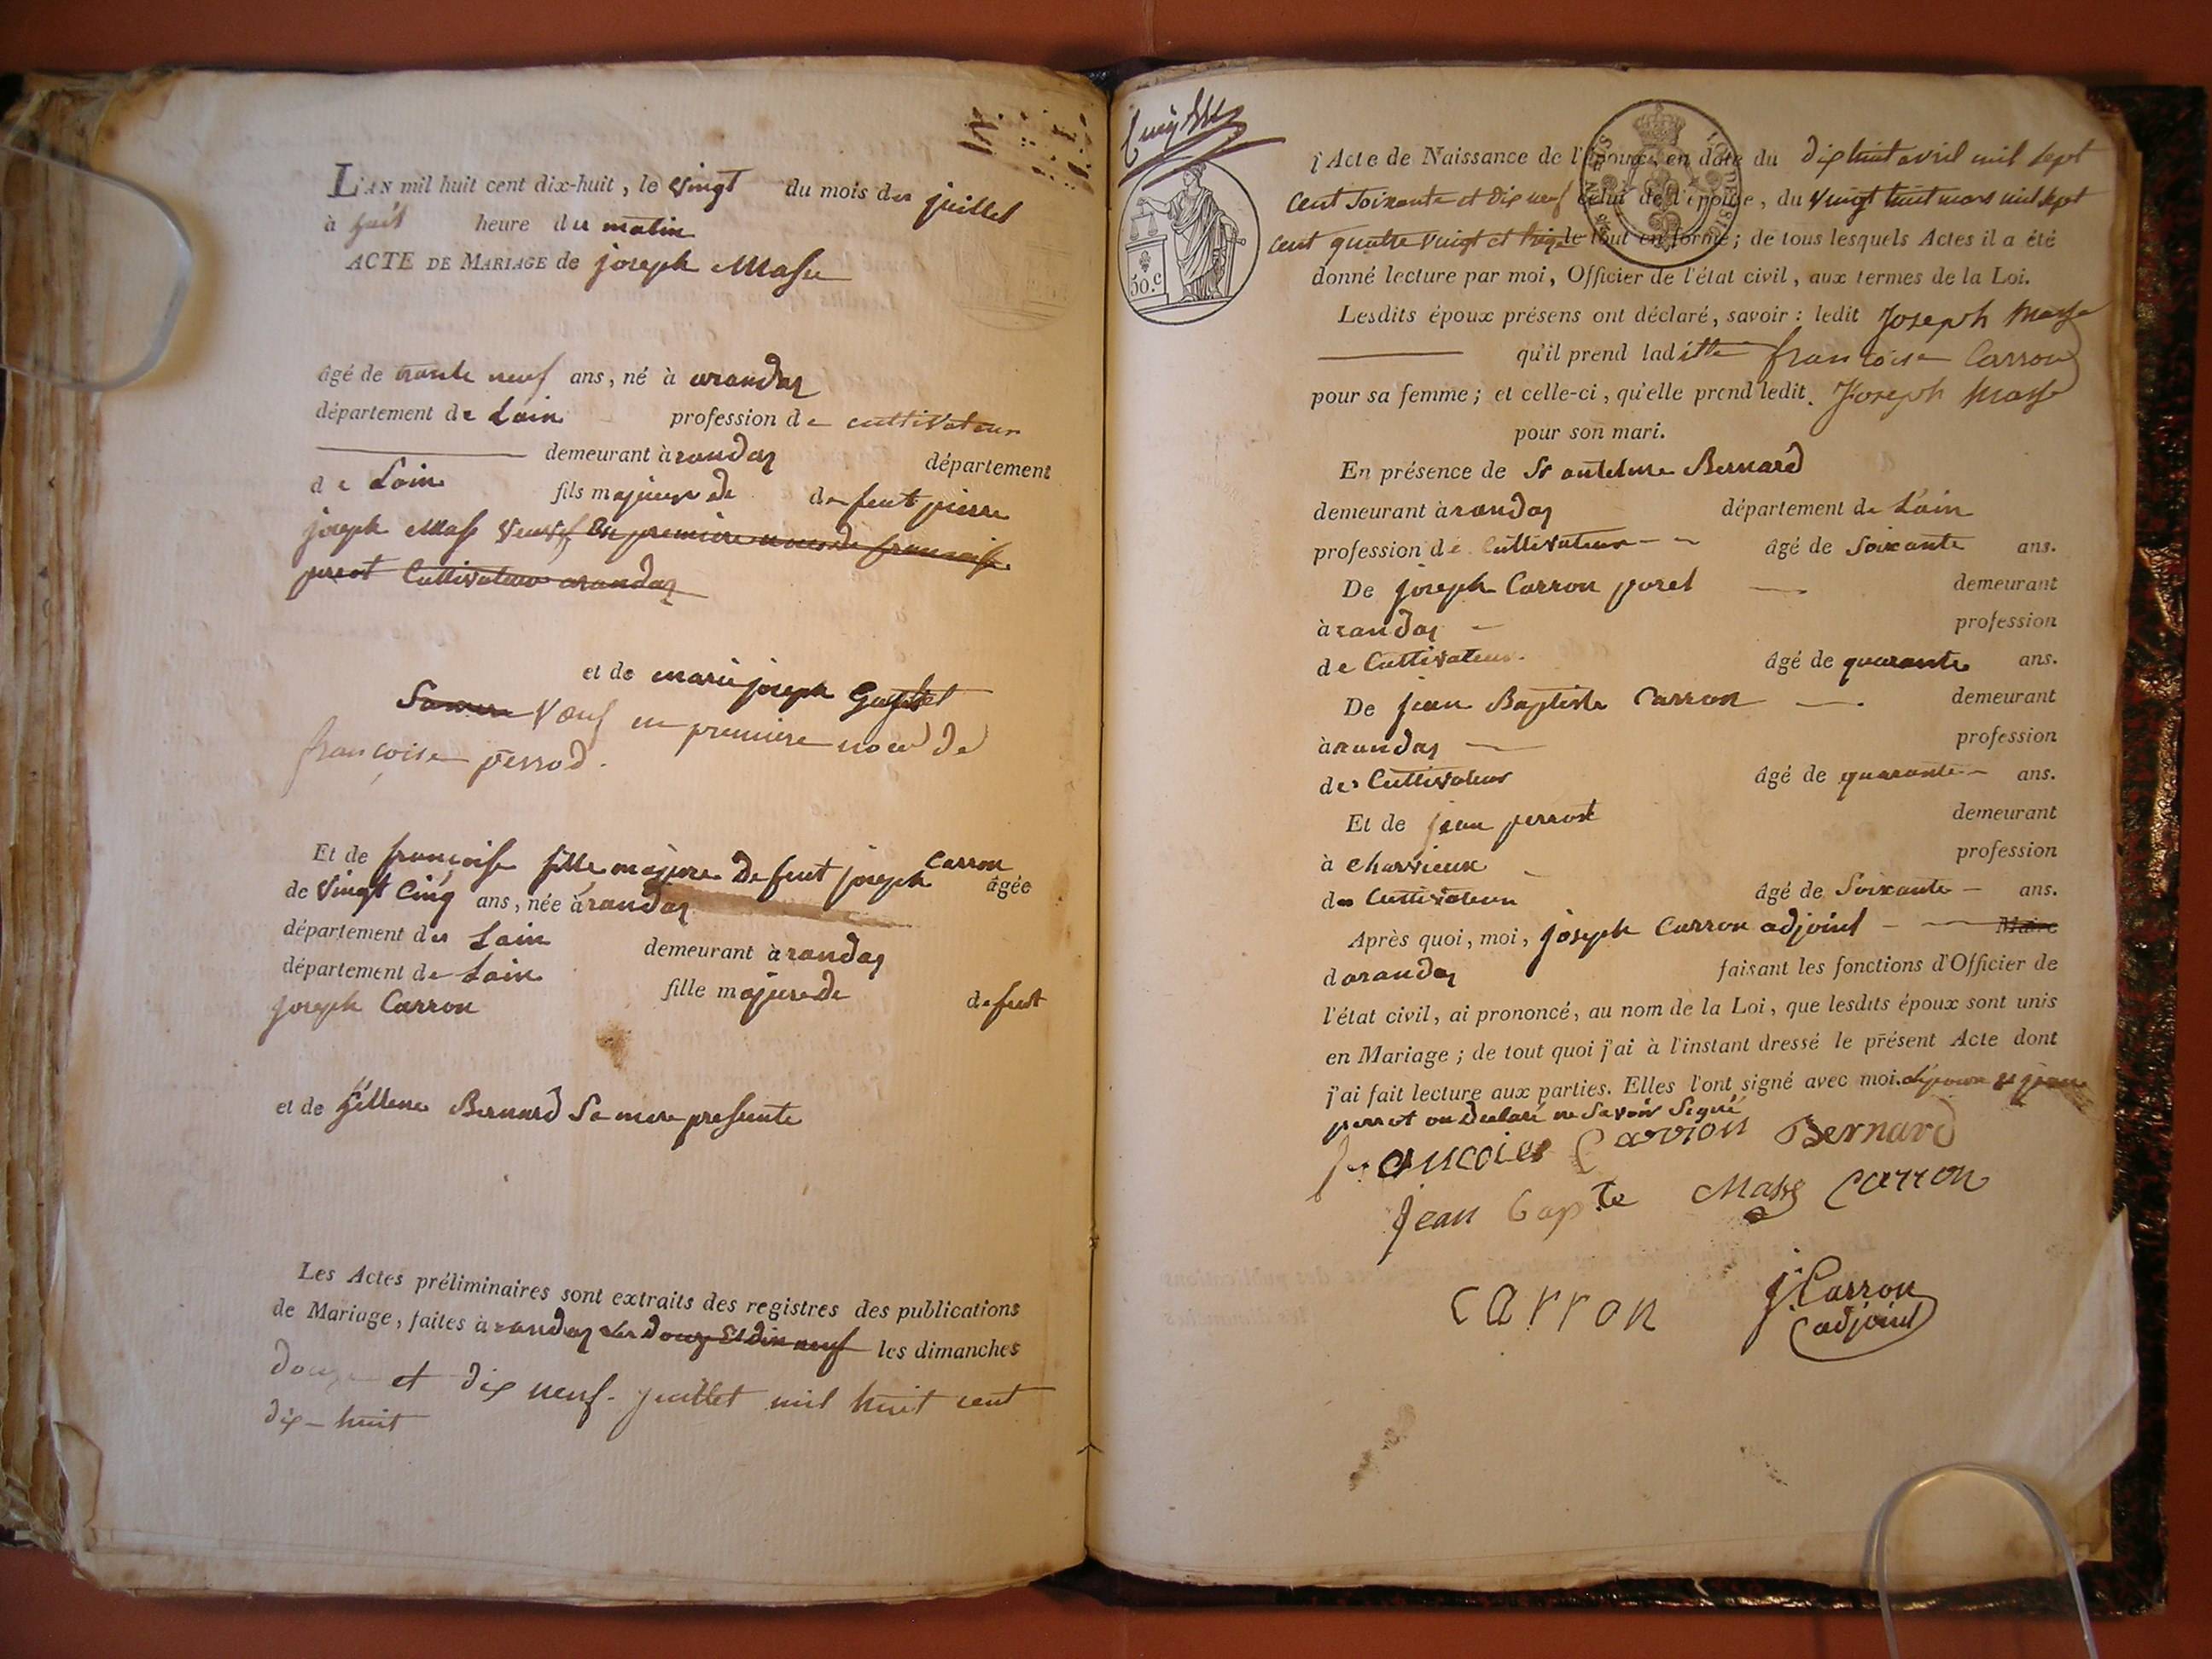 L'AN mil huit cent dix-huit, le vingt du mois de juillet
à huit heure du matin
ACTE DE MARIAGE de joseph Masse
âgé de trente neuf ans, né à arandas
département de Lain profession de cultivateur
demeurant à randas département
de Lain fils majeur de de feut pierre
joseph Mass veuvf en premiere noces de francoise
perrot Cultivateur arandas
et de marie joseph
Sa mere Vœuf en premiere noce de
françoise perrod.
Et de françoise fille majeure De feut joseph Carron âgée
de vingt Cinq ans, née à randas
département de Lain demeurant à randas
département de Lain fille majeure de de feut
joseph Carron
et de héllene Bernard Sa mere presente
Les Actes préliminaires sont extraits des registres des publications
de Mariage, faites à randas les douze Et dix neuf les dimanches
douze et dix neuf juillet mil huit cent
dix-huit
50.c
l'Acte de Naissance de l'époux, en date du dix huit avril mil sept
cent soixante et dix neuf celui de l'épouse, du vingt huit mars mil sept
cent quatre vingt et treize le tout en forme; de tous lesquels Actes il a été
donné lecture par moi, Officier de l'état civil, aux termes de la Loi.
Lesdits époux présens ont déclaré, savoir: ledit Joseph Masse
qu'il prend laditte francoise Carron
pour sa femme; et celle-ci, qu'elle prend ledit Joseph Masse
pour son mari.
En présence de Sr antelme Bernard
demeurant à randas département de Lain
profession de Cultivateur âgé de Soixante ans.
De joseph Carron poret demeurant
à randas profession
de Cultivateur âgé de quarante ans.
De jean Baptiste Carron demeurant
à randas profession
de Cultivateur âgé de quarante ans.
Et de jean perrost demeurant
à charvieux profession
de Cultivateur âgé de Soixante ans.
Après quoi, moi, joseph Carron adjoint Maire
darandas faisant les fonctions d'Officier de
l'état civil, ai prononcé, au nom de la Loi, que lesdits époux sont unis
en Mariage; de tout quoi j'ai à l'instant dressé le présent Acte dont
j'ai fait lecture aux parties. Elles l'ont signé avec moi.
perrot on Declaré ne Savoir Signé
francoise Carrion Bernard
jean bapte Mass Carron
carron j. Carron
adjoint